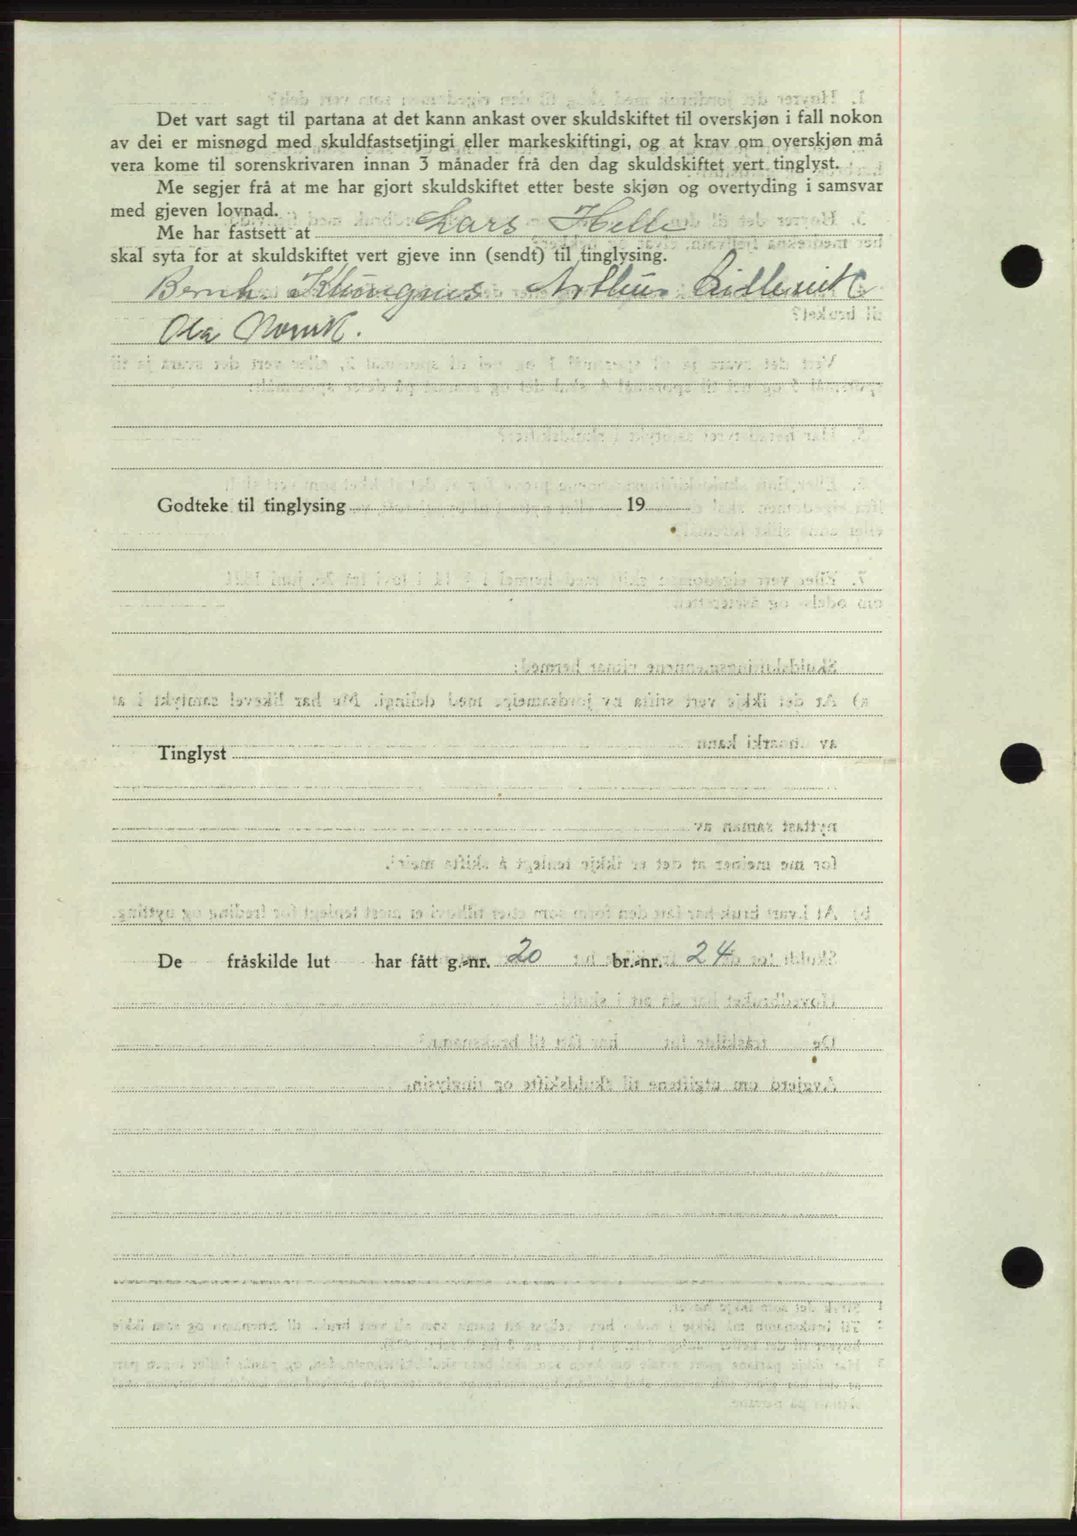 Det vart sagt til partana at det kann ankast over skuldskiftet til overskjøn i fall nokon
av dei er misnøgd med skuldfastsetjingi eller markeskiftingi, og at krav om overskjøn må
vera kome til sorenskrivaren innan 3 månader frå den dag skuldskiftet vert tinglyst.
Me segjer frå at me har gjort skuldskiftet etter beste skjøn og overtyding i samsvar
med gjeven lovnad.
Me har fastsett at Lars Helle
skal syta for at skuldskiftet vert gjeve inn (sendt) til tinglysing.
Bernh. Arthur
Ola
Godteke til tinglysing 19
Tinglyst
De fråskilde lut har fått g.-nr. 20 br.-nr. 24